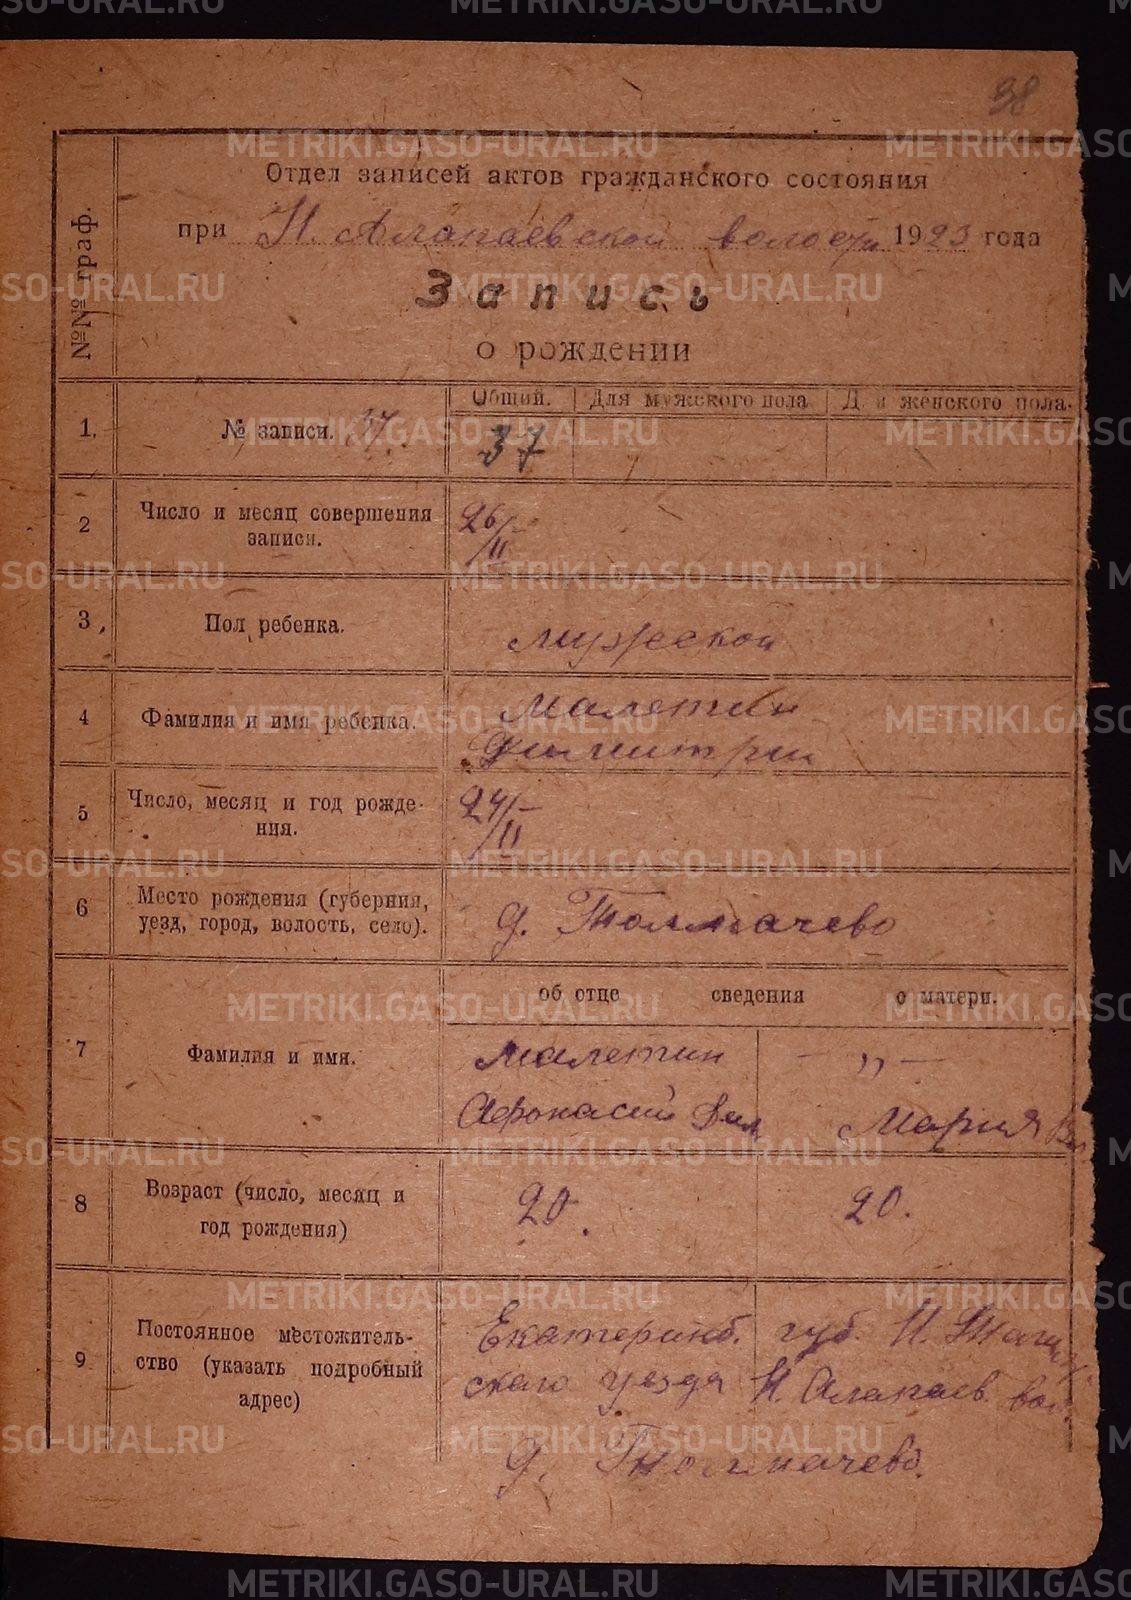 38
Отдел записей актов гражданского состояния
при Н. Алапаевской волости 1923 года
Запись
о рождении
№№ граф.
Общий. Для мужского пола Для женского пола.
1. № записи. 37. 37
2 Число и месяц совершения 26/II
записи.
3. Пол ребенка. мужеской
4 Фамилия и имя ребенка. Малетин
Димитрий
5 Число, месяц и год рожде- 24/II
ния.
6 Место рождения (губерния,
уезд, город, волость, село). д. Толмачево
об отце сведения о матери.
7 Фамилия и имя. Малетин — „ —
Афонасий Дим. Мария
8 Возраст (число, месяц и 20. 20.
год рождения)
9 Постоянное местожитель- Екатеринб. губ. Н. Тагил
ство (указать подробный ского уезда Н. Алапаев. вол.
адрес)
д. Толмачево.
METRIKI.GASO-URAL.RU